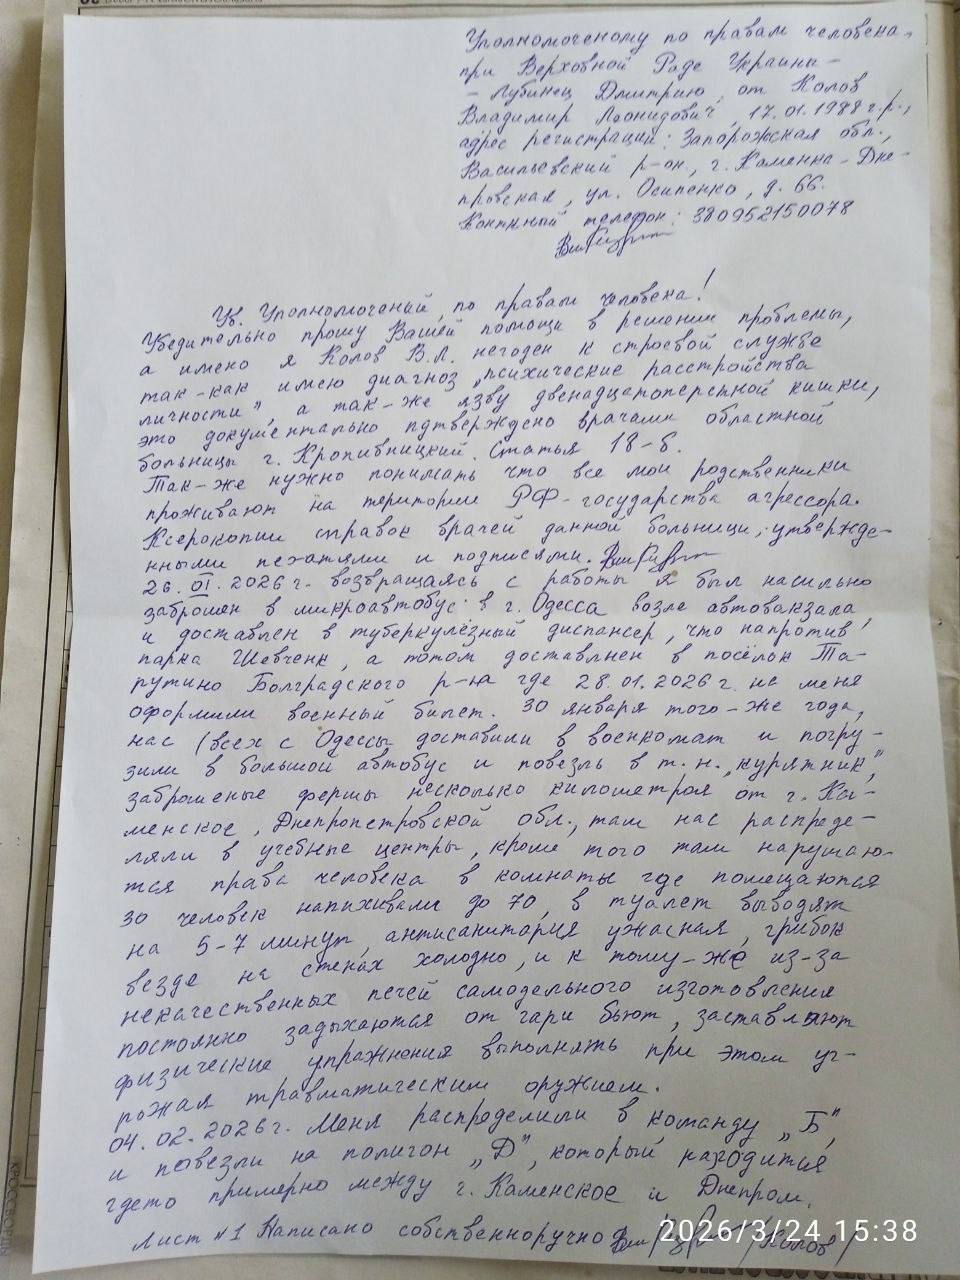 Уполномоченому по правам человека,
при Верховной Раде Украины -
- Лубинец Дмитрию, от Колов
Владимир Леонидович, 17.01.1988 г.р.,
адрес регистрации: Запорожская обл.,
Васильевский р-он, г. Каменка-Дне-
провская, ул. Осипенко, д. 66.
Конткный телефон: 380952150078
Ув. Уполномоченый, по правам человека!
Убедительно прошу Вашей помощи в решении проблемы,
а имено я Колов В.Л. негоден к строевой службе
так-как имею диагноз „психические расстройства
личности", а так-же язву двенадцатоперстной кишки,
это документально пдтверждено врачами областной
больницы г. Кропивницкий. Статья 18-б.
Так-же нужно понимать что все мои родственники
проживают на територии РФ-государства агрессора.
Ксерокопии справок врачей данной больници, утвержде-
нными печатями и подписями.
26.01.2026 г. возвращаясь с работы я был насильно
заброшен в микроавтобус в г. Одесса возле автовакзала,
и доставлен в туберкулёзный диспансер, что напротив
парка Шевченк, а потом доставлнен в посёлок Та-
рутино Болградского р-на где 28.01.2026 г. на меня
оформили военный билет. 30 января того-же года,
нас (всех с Одессы доставили в военкомат и погру-
зили в большой автобус и повезль в т.н. „курятник",
заброшеные фермы несколько километроя от г. Ка-
менское, Днепропетровской обл., там нас распреде-
ляли в учебные центры, кроме того там нарушаю-
тся права человека в комнаты где помещаются
30 человек напихивали до 70, в туалет выводят
на 5-7 минут, антисанитария ужасная, грибок
везде на стенах холодно, и к тому-же из-за
некачественных печей самодельного изготовления
постоянно задыхаются от гари бьют, заставляют
физические упражнения выполнять при этом уг-
рожая травматическим оружием.
04.02.2026 г. Меня распределили в команду „Б",
и повезли на полигон „Д", который находится
гдето примерно между г. Каменское и Днепром.
Лист №1 Написано собственноручно /Колов/
2026/3/24 15:38
КРОССВОРДЫ